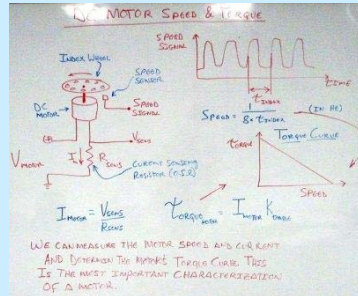 DC MOTOR SPEED & TORQUE
INDEX WHEEL
SPEED SENSOR
DC MOTOR
SPEED SIGNAL
V MOTOR
Im
R SENS
VSENS
CURRENT SENSING RESISTOR (0.5Ω)
SPEED SIGNAL
TIME
t INDEX
SPEED = 1 / 8·t INDEX (IN HZ)
TORQUE CURVE
TORQUE
SPEED
I MOTOR = VSENS / RSENS
τ TORQUE MOTOR = I MOTOR K TORQUE
WE CAN MEASURE THE MOTOR SPEED AND CURRENT
AND DETERMINE THE MOTORS TORQUE CURVE. THIS
IS THE MOST IMPORTANT CHARACTERIZATION
OF A MOTOR.